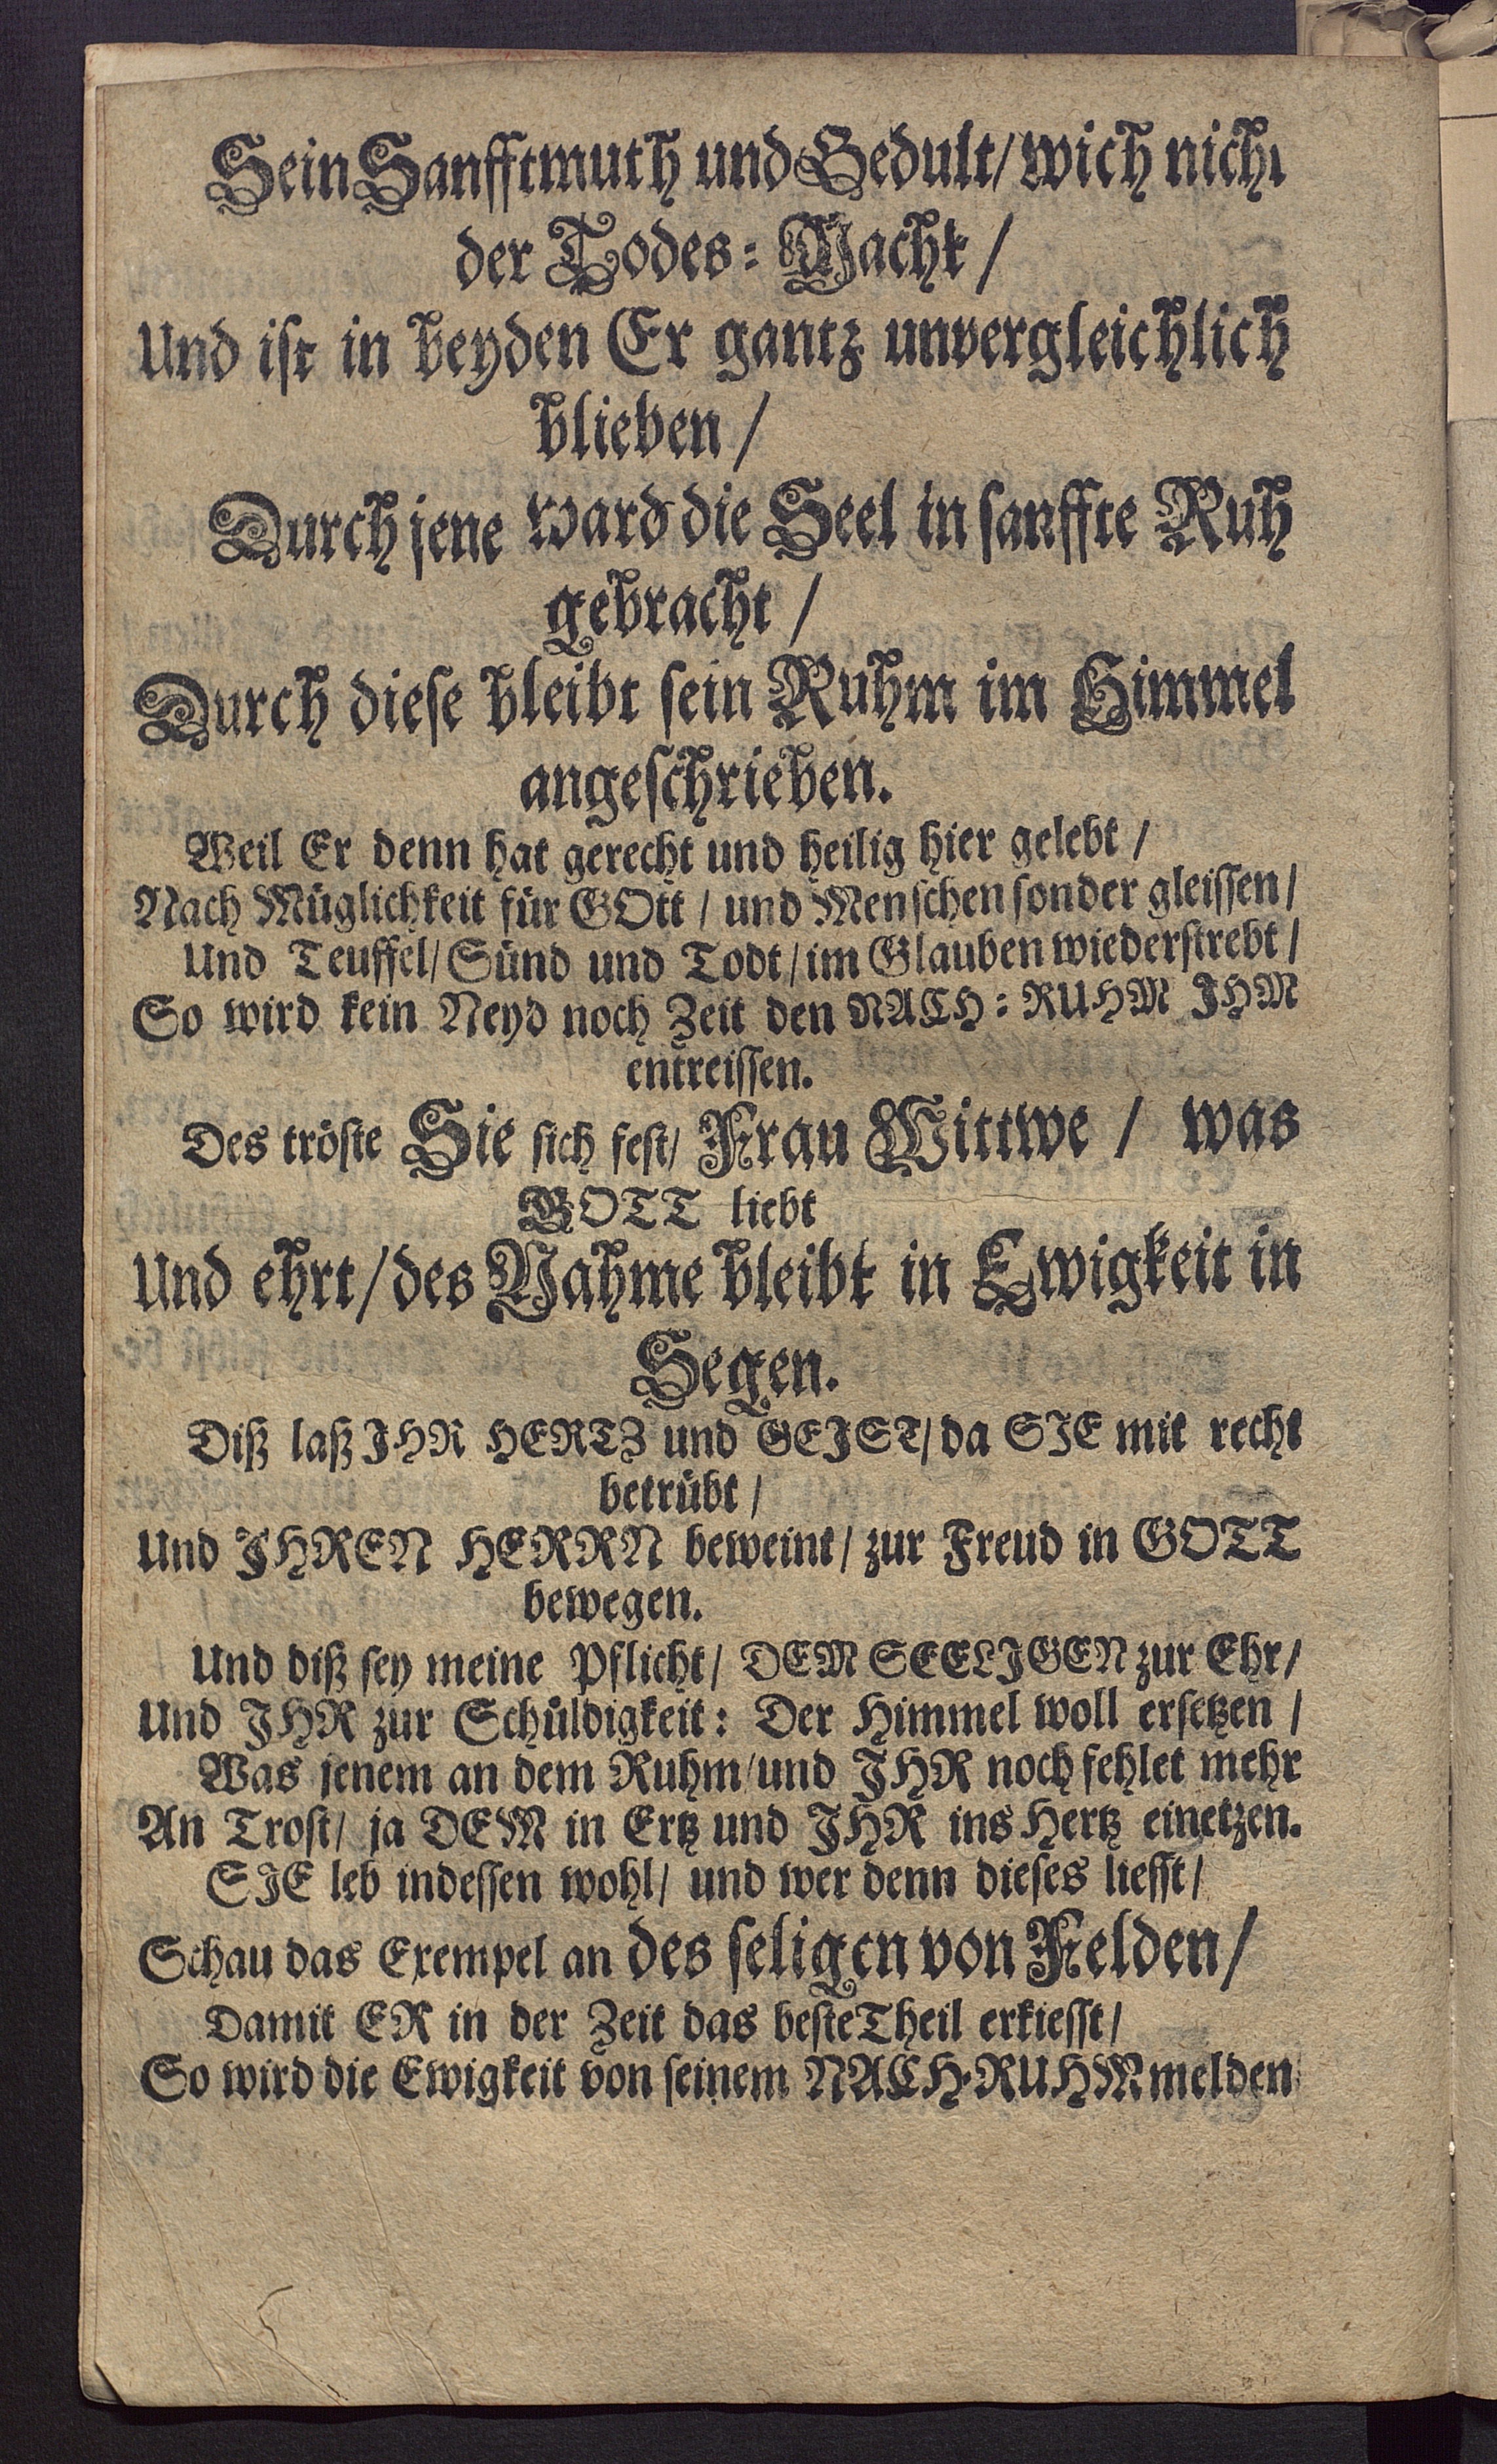 Sein Sanfftmuth und Gedult/ wich nicht
der Todes: Nacht/
Und ist in beyden Er gantz unvergleichlich
blieben/
Durch jene ward die Seel in sanffte Ruh
gebracht/
Durch diese bleibt sein Ruhm im Himmel
angeschrieben.
Weil Er denn hat gerecht und heilig hier gelebt/
Nach Müglichkeit für GOtt/ und Menschen sonder gleissen/
Und Teuffel/ Sünd und Todt/ im Glauben wiederstrebt/
So wird kein Neyd noch Zeit den NACH: RUHM JHM
entreissen.
Des tröste Sie sich fest/ Frau Wittwe/ was
GOTT liebt
Und ehrt/ des Nahme bleibt in Ewigkeit in
Segen.
Diß laß JHR HERTZ und GEJST/ da SJE mit recht
betrübt/
Und JHREN HERRN beweint/ zur Freud in GOTT
bewegen.
Und diß sey meine Pflicht/ DEM SEELJGEN zur Ehr/
Und JHR zur Schüldigkeit: Der Himmel woll ersetzen/
Was jenem an dem Ruhm/ und JHR noch fehlet mehr
An Trost/ ja DEM in Ertz und JHR ins Hertz einetzen.
SJE leb indessen wohl/ und wer denn dieses liesst/
Schau das Exempel an des seligen von Felden/
Damit ER in der Zeit das beste Theil erkiesst/
So wird die Ewigkeit von seinem NACH-RUHM melden